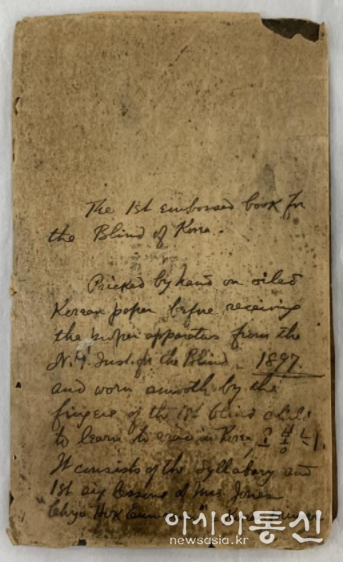 The 1st embossed book for
the Blind of Korea.
Pricked by hand on oiled
Korean paper before receiving
the proper apparatus from the
N.Y. Inst. for the Blind. 1897.
and worn smooth by the
fingers of the 1st blind child
to learn to read in Korea
It consists of the syllabary and
1st lessons of Mrs. Jones
아시아통신
newsasia.kr